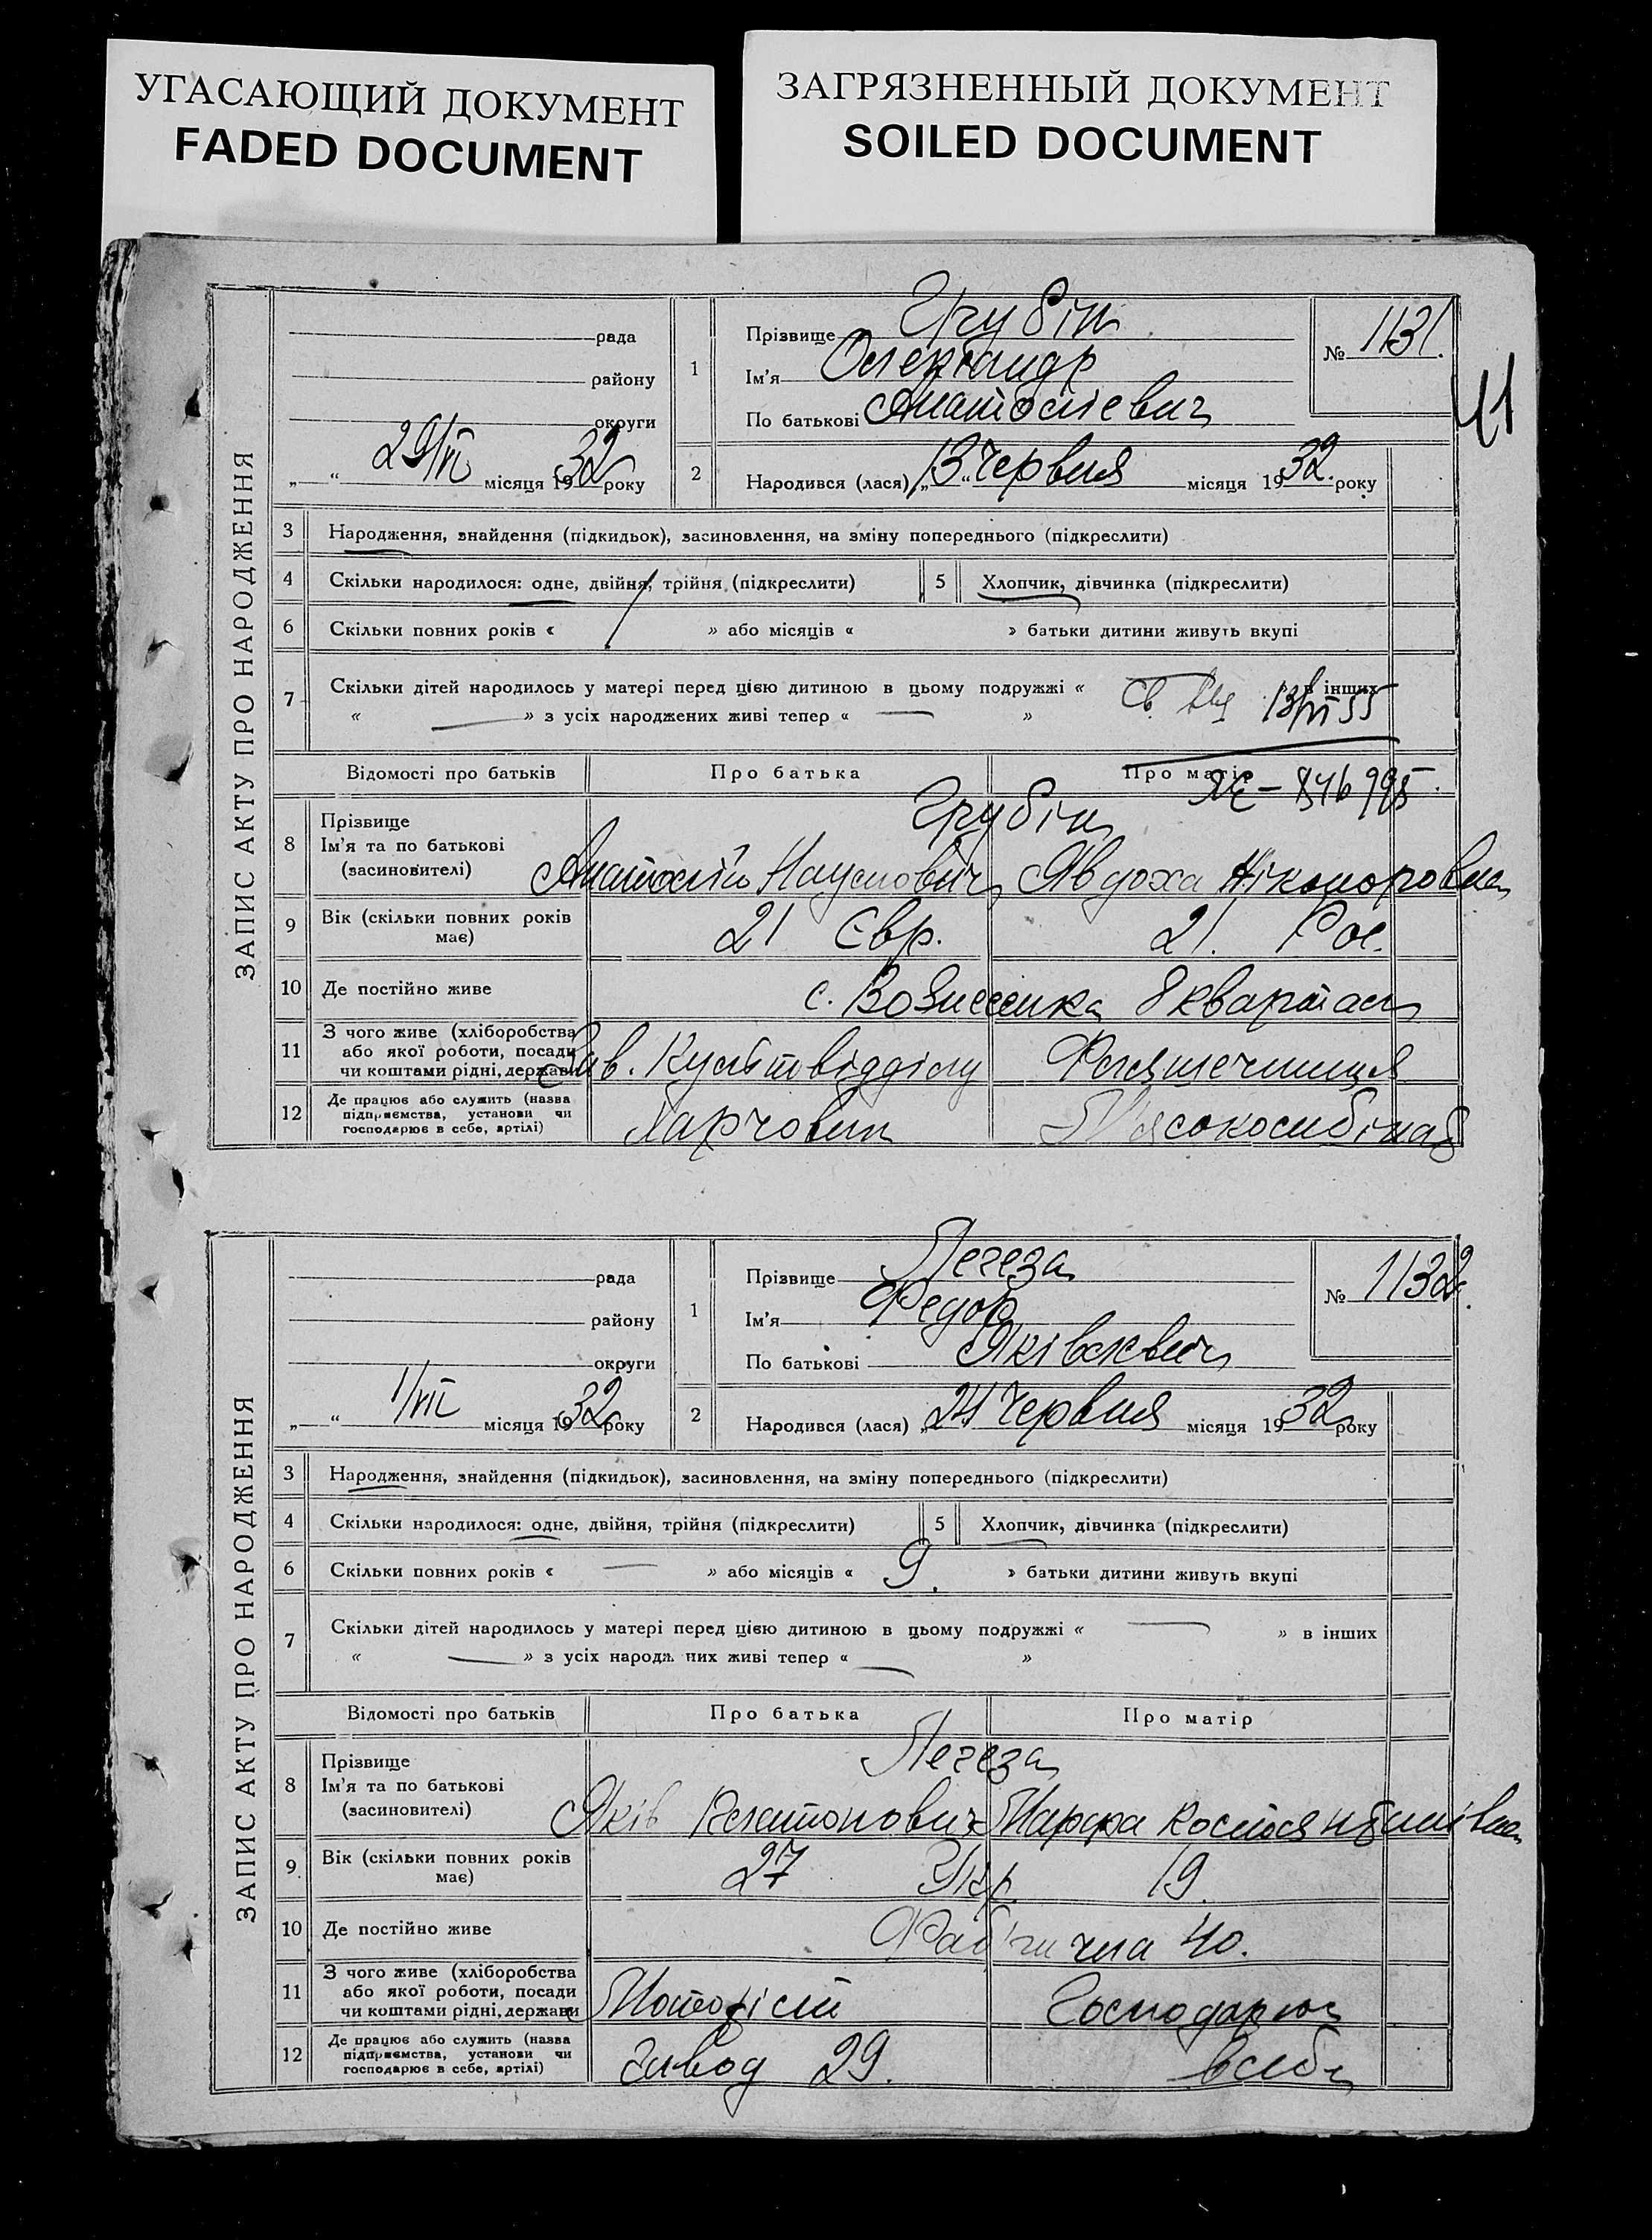 УГАСАЮЩИЙ ДОКУМЕНТ
FADED DOCUMENT
ЗАГРЯЗНЕННЫЙ ДОКУМЕНТ
SOILED DOCUMENT
41
ЗАПИС АКТУ ПРО НАРОДЖЕННЯ
рада
району
округи
„ “ 29/VI місяця 1932 року
1 Прізвище Грубін
Ім'я Олександр
По батькові Анатолієвич
№ 1131.
2 Народився (лася) „13“ Червня місяця 1932. року
3 Народження, знайдення (підкидьок), засиновлення, на зміну попереднього (підкреслити)
4 Скільки народилося: одне, двійня, трійня (підкреслити) 5 Хлопчик, дівчинка (підкреслити)
6 Скільки повних років « » або місяців « » батьки дитини живуть вкупі
7 Скільки дітей народилось у матері перед цією дитиною в цьому подружжі « » в інших
« — » з усіх народжених живі тепер « — »
Св. 13/VI 55
Відомості про батьків Про батька Про матір
846995.
8 Прізвище Грубін
Ім'я та по батькові Анатолій Наумович Явдоха Нікопоровна
(засновителі)
9 Вік (скільки повних років має) 21 Євр. 21. Рос.
10 Де постійно живе с. Вознесенка 8 квартал
11 З чого живе (хліборобства або якої роботи, посади чи коштами рідні, держави Зав. Культвідділу
12 Де працює або служить (назва підприємства, установи чи господарює в себе, артілі) Харчовик М'ясокомбінат
ЗАПИС АКТУ ПРО НАРОДЖЕННЯ
рада
району
округи
„ “ 1/VII місяця 1932 року
1 Прізвище Легеза
Ім'я Федор
По батькові Яківлевич
№ 1132.
2 Народився (лася) „24 Червня місяця 1932 року
3 Народження, знайдення (підкидьок), засиновлення, на зміну попереднього (підкреслити)
4 Скільки народилося: одне, двійня, трійня (підкреслити) 5 Хлопчик, дівчинка (підкреслити)
6 Скільки повних років « — » або місяців « 9. » батьки дитини живуть вкупі
7 Скільки дітей народилось у матері перед цією дитиною в цьому подружжі « — » в інших
« — » з усіх народж них живі тепер « — »
Відомості про батьків Про батька Про матір
8 Прізвище Легеза
Ім'я та по батькові Яків Платонович Марфа
(засновителі)
9. Вік (скільки повних років має) 27 Укр. 19.
10 Де постійно живе Фабрична 40.
11 З чого живе (хліборобства або якої роботи, посади чи коштами рідні, держави Моторіст Господарює
12 Де працює або служить (назва підприємства, установи чи господарює в себе, артілі) завод 29. в себе